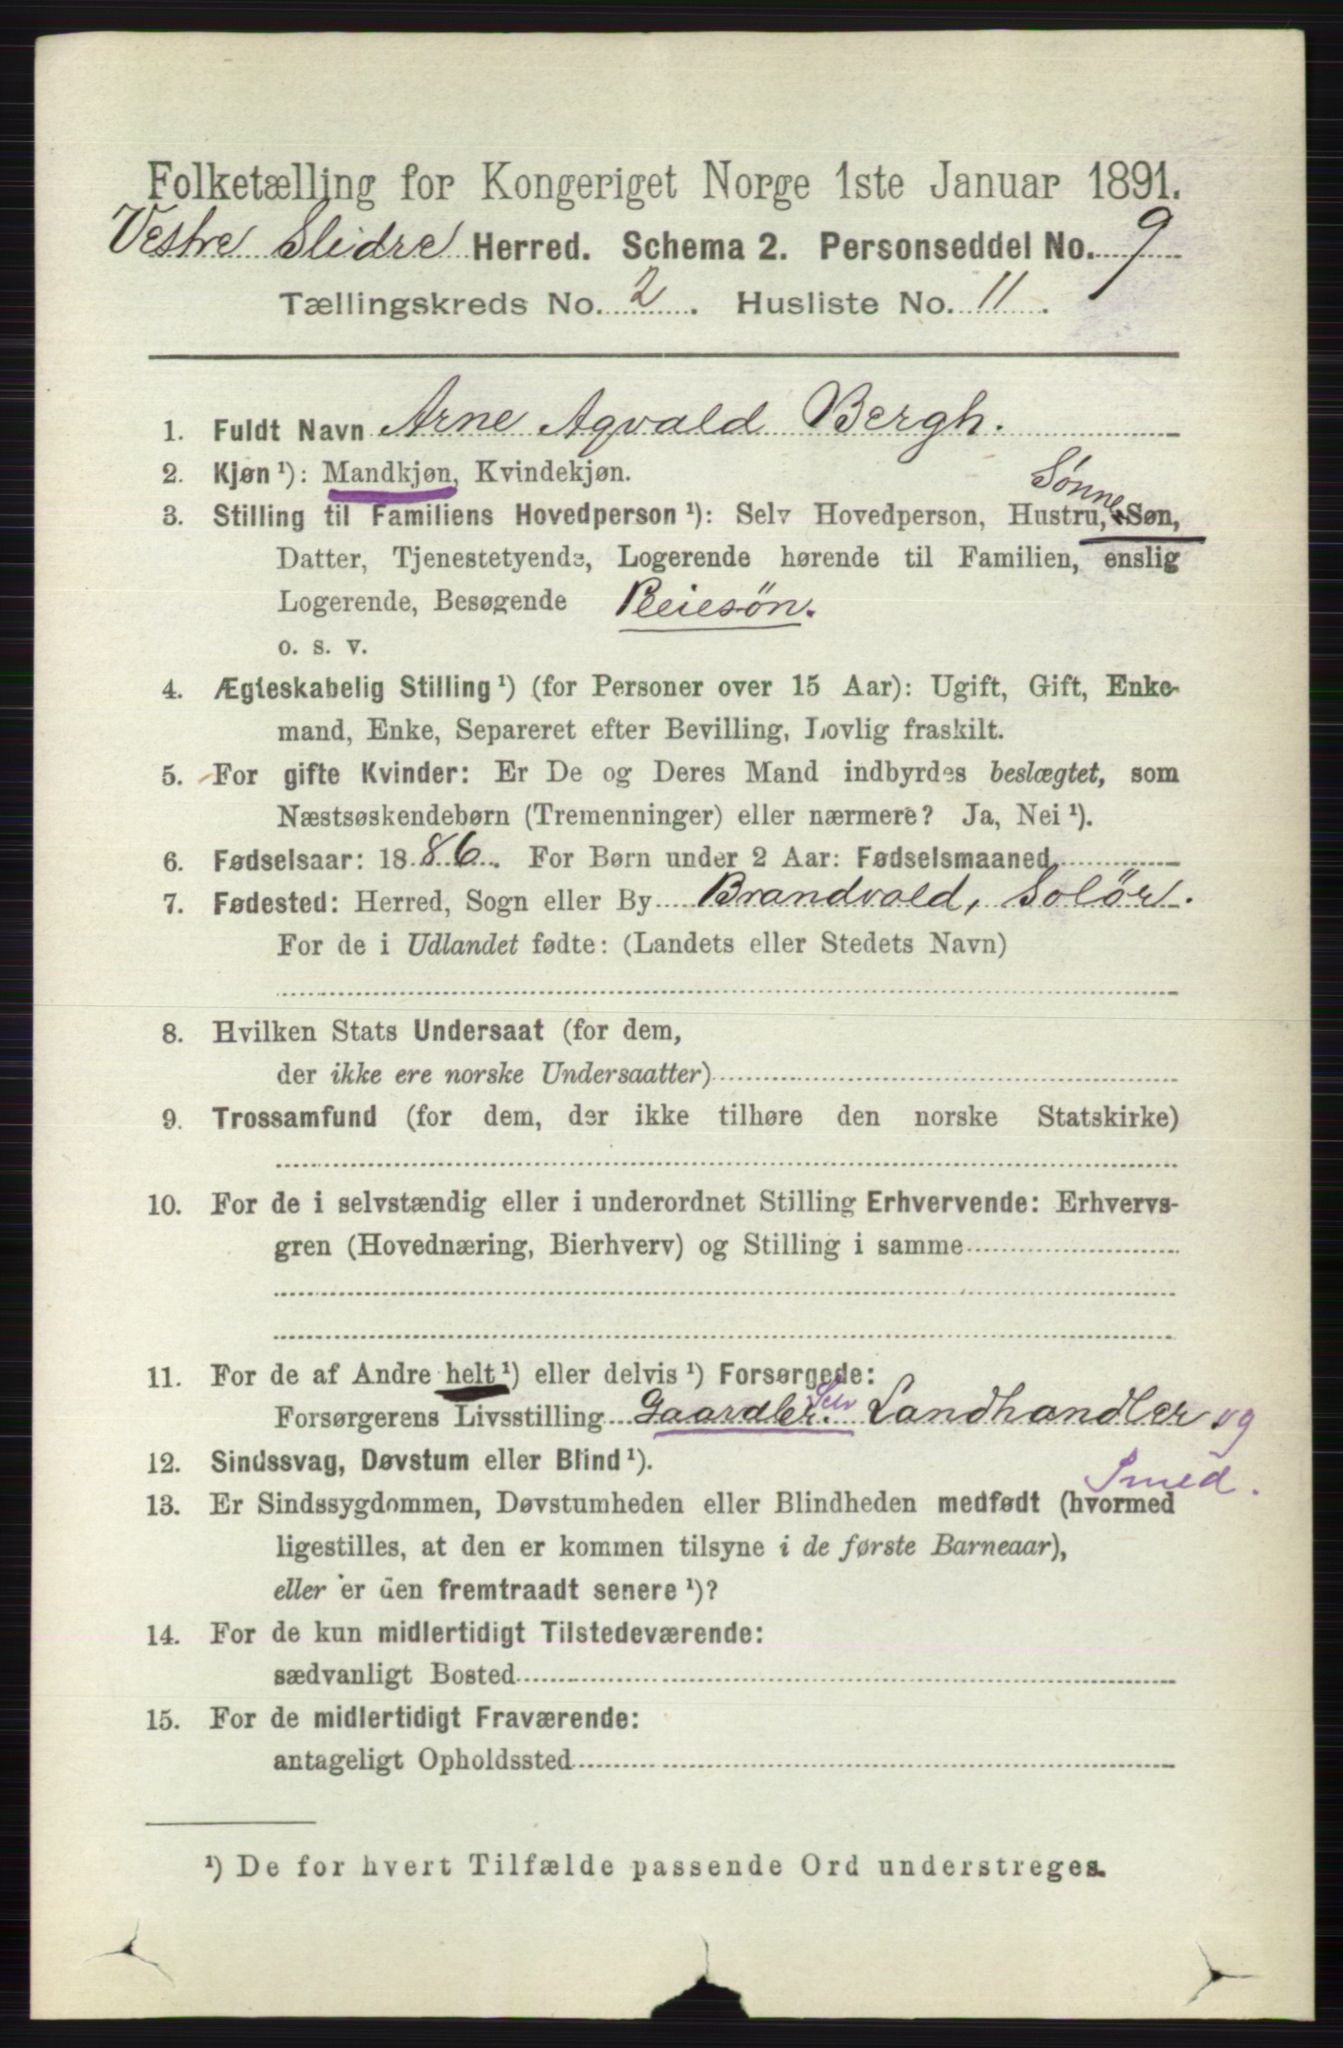 Folketælling for Kongeriget Norge 1ste Januar 1891.
Vestre Slidre Herred. Schema 2. Personseddel No. 9
Tællingskreds No. 2. Husliste No. 11.
1. Fuldt Navn Arne Agvald Bergh.
2. Kjøn ¹): Mandkjøn, Kvindekjøn.
Sønne
3. Stilling til Familiens Hovedperson ¹): Selv Hovedperson, Hustru, Søn,
Datter, Tjenestetyende, Logerende hørende til Familien, enslig
Logerende, Besøgende Pleiesøn.
o. s. v.
4. Ægteskabelig Stilling ¹) (for Personer over 15 Aar): Ugift, Gift, Enke-
mand, Enke, Separeret efter Bevilling, Lovlig fraskilt.
5. For gifte Kvinder: Er De og Deres Mand indbyrdes beslægtet, som
Næstsøskendebørn (Tremenninger) eller nærmere? Ja, Nei ¹).
6. Fødselsaar: 1886. For Børn under 2 Aar: Fødselsmaaned
7. Fødested: Herred, Sogn eller By Brandvold, Solör.
For de i Udlandet fødte: (Landets eller Stedets Navn)
8. Hvilken Stats Undersaat (for dem,
der ikke ere norske Undersaatter)
9. Trossamfund (for dem, der ikke tilhøre den norske Statskirke)
10. For de i selvstændig eller i underordnet Stilling Erhvervende: Erhvervs-
gren (Hovednæring, Bierhverv) og Stilling i samme
11. For de af Andre helt ¹) eller delvis ¹) Forsørgede:
Forsørgerens Livsstilling Gaardbr. Selv Landhandler og
Smed.
12. Sindssvag, Døvstum eller Blind ¹).
13. Er Sindssygdommen, Døvstumheden eller Blindheden medfødt (hvormed
ligestilles, at den er kommen tilsyne i de første Barneaar),
eller er den fremtraadt senere ¹)?
14. For de kun midlertidigt Tilstedeværende:
sædvanligt Bosted
15. For de midlertidigt Fraværende:
antageligt Opholdssted
¹) De for hvert Tilfælde passende Ord understreges.